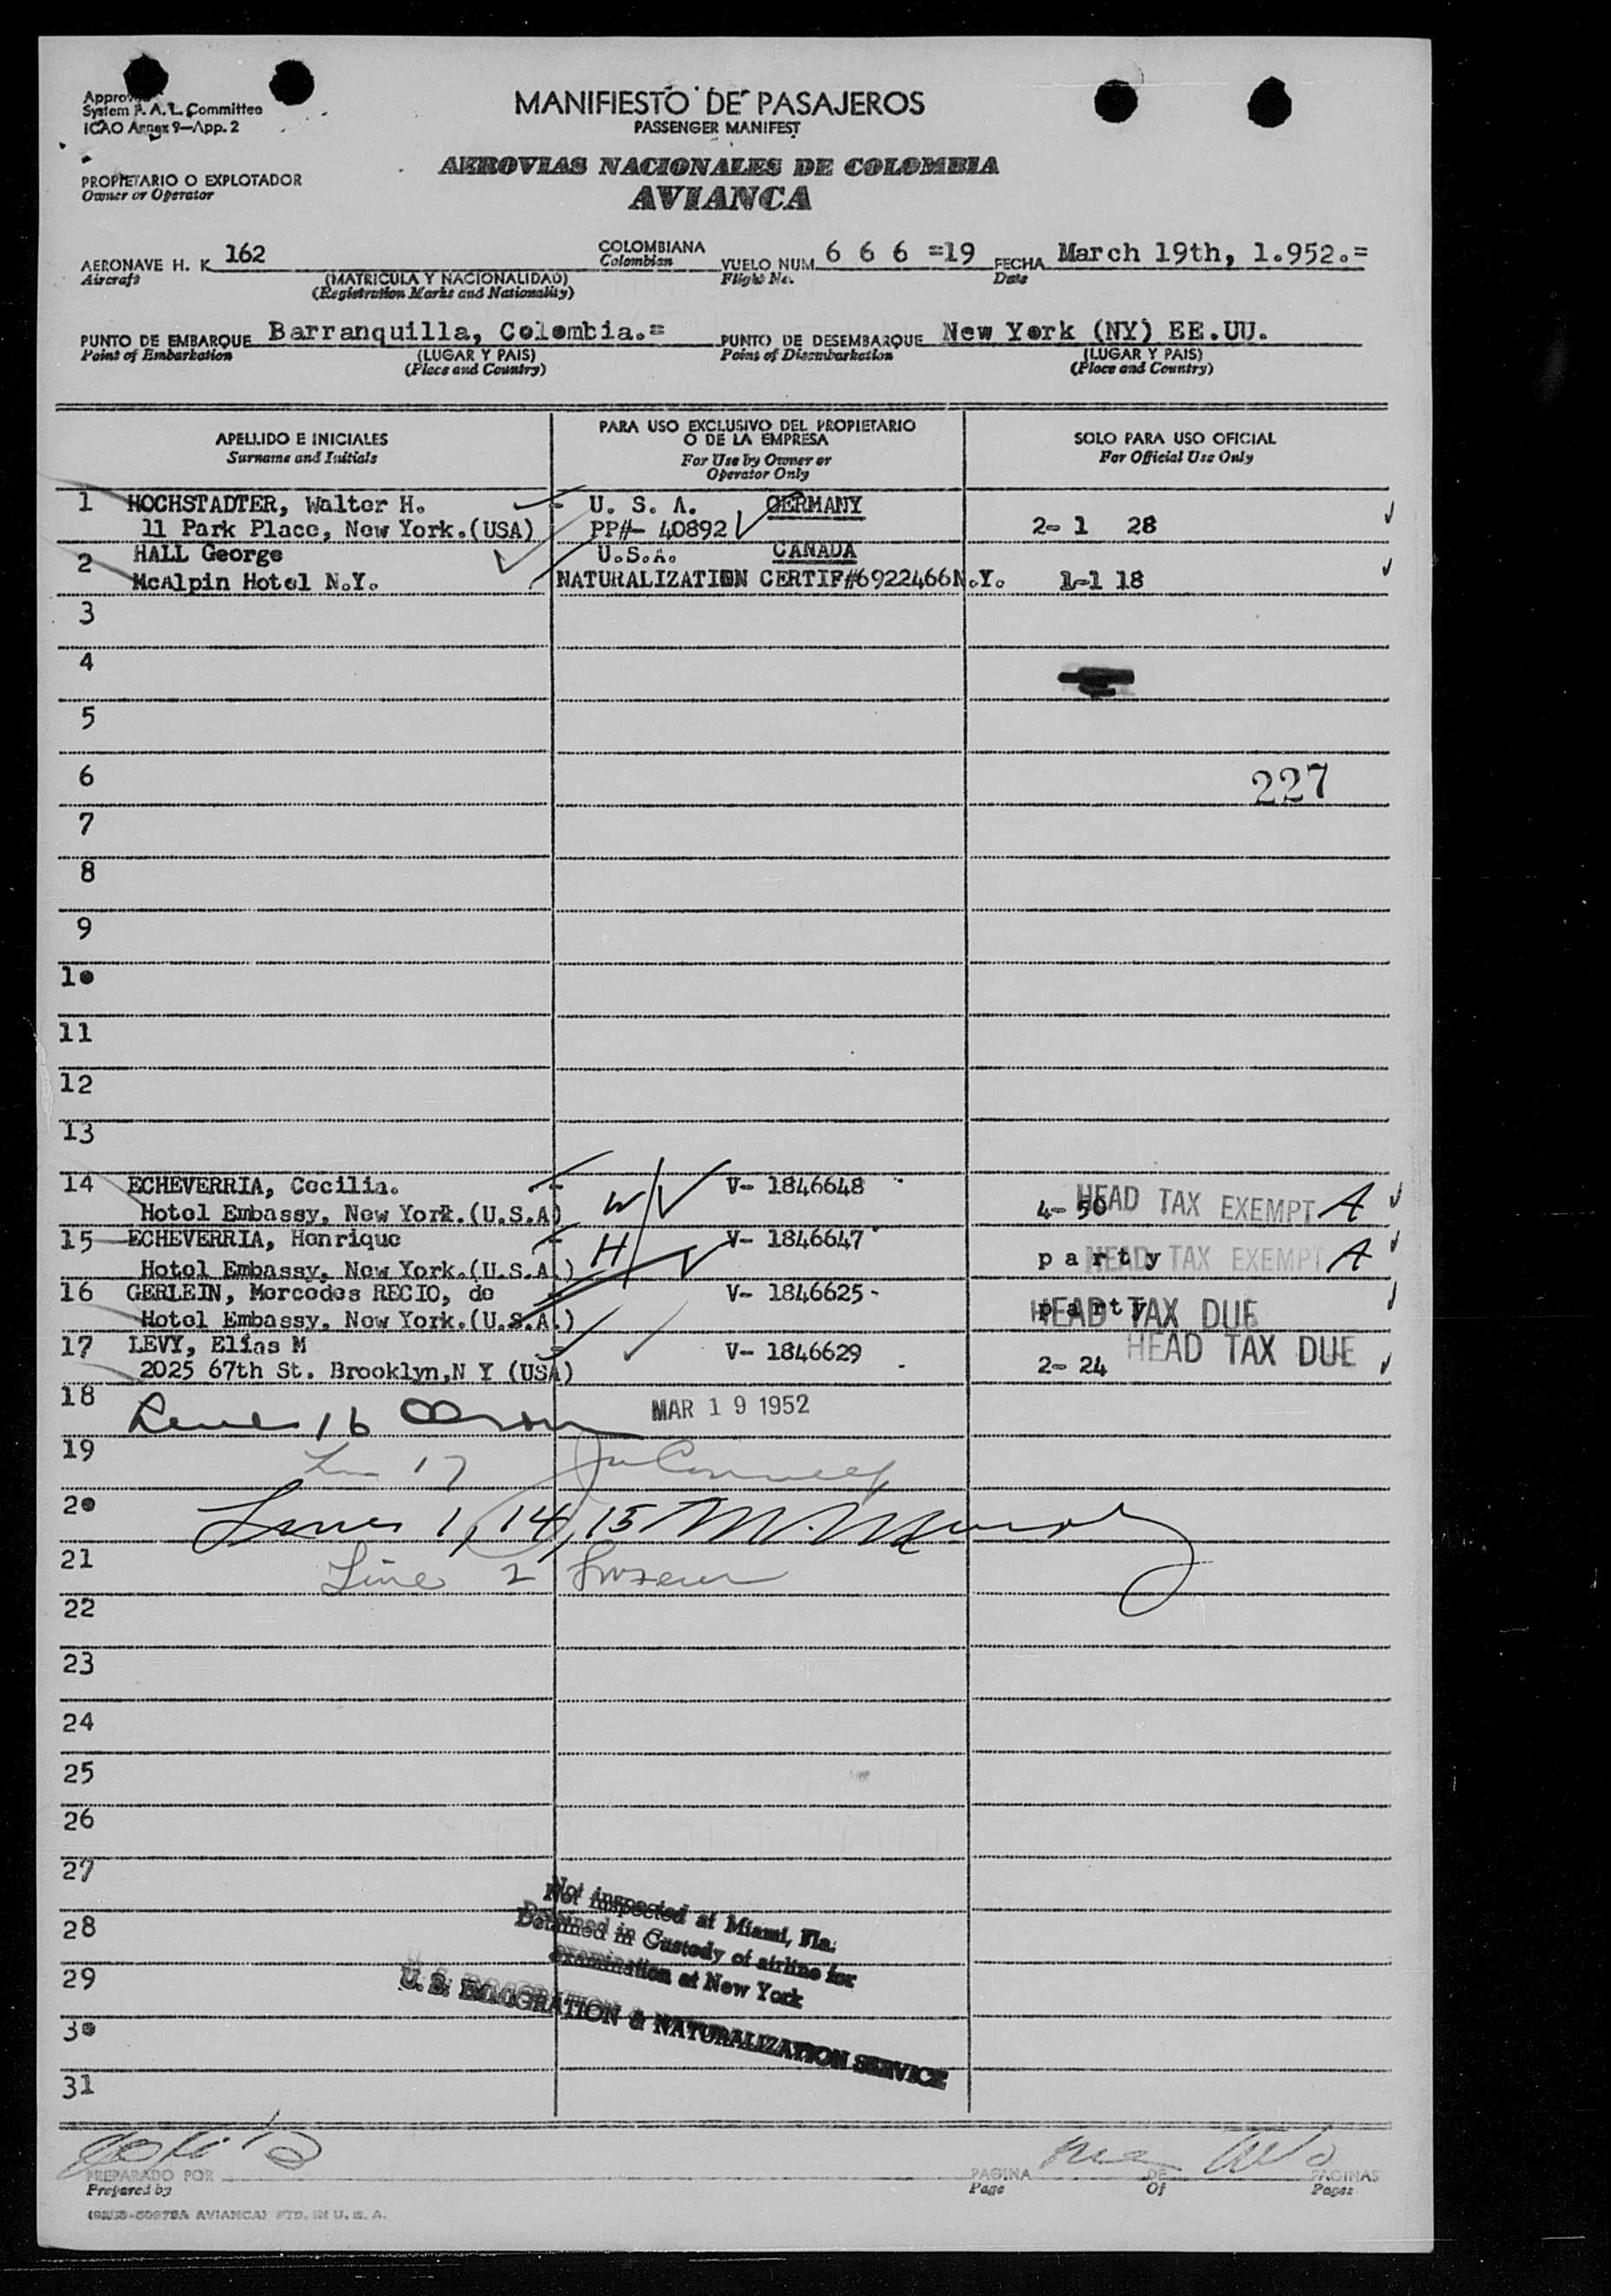 Approved
System F. A. L. Committee
ICAO Annex 9—App. 2
MANIFIESTO DE PASAJEROS
PASSENGER MANIFEST
PROPIETARIO O EXPLOTADOR
Owner or Operator
AEROVIAS NACIONALES DE COLOMBIA
AVIANCA
AERONAVE H. K 162 COLOMBIANA VUELO NUM. 6 6 6 =19 FECHA March 19th, 1.952.=
Aircraft (MATRICULA Y NACIONALIDAD) Colombian Flight No. Date
(Registration Marks and Nationality)
PUNTO DE EMBARQUE Barranquilla, Colombia.= PUNTO DE DESEMBARQUE New York (NY) EE.UU.
Point of Embarkation (LUGAR Y PAIS) Point of Disembarkation (LUGAR Y PAIS)
(Place and Country) (Place and Country)
APELLIDO E INICIALES PARA USO EXCLUSIVO DEL PROPIETARIO O DE LA EMPRESA SOLO PARA USO OFICIAL
Surname and Initials For Use by Owner or Operator Only For Official Use Only
1 HOCHSTADTER, Walter H. U. S. A. GERMANY
11 Park Place, New York.(USA) PP#- 40892 2- 1 28
2 HALL George U.S.A. CANADA
McAlpin Hotel N.Y. NATURALIZATION CERTIF#6922466N.Y. 1-1 18
3
4
5
6 227
7
8
9
10
11
12
13
14 ECHEVERRIA, Cecilia. W V- 1846648
Hotel Embassy, New York.(U.S.A) 4- 50 HEAD TAX EXEMPT A
15 ECHEVERRIA, Henrique H V- 1846647
Hotel Embassy, New York.(U.S.A.) p a r t y HEAD TAX EXEMPT A
16 GERLEIN, Mercedes RECIO, de V- 1846625-
Hotel Embassy, New York.(U.S.A.) p a r t y HEAD TAX DUE
17 LEVY, Elias M V- 1846629 HEAD TAX DUE
2025 67th St. Brooklyn,N Y (USA) 2- 24
18 16 MAR 19 1952
19 17
20 Lines 1, 14, 15 M.
21 Line 2
22
23
24
25
26
27
28
29
30
31
Not inspected at Miami, Fla.
Detained in Custody of airline for
examination at New York
U. S. IMMIGRATION & NATURALIZATION SERVICE
PREPARADO POR PAGINA DE PAGINAS
Prepared by Page Of Pages
AVIANCA) PTD. IN U. S. A.